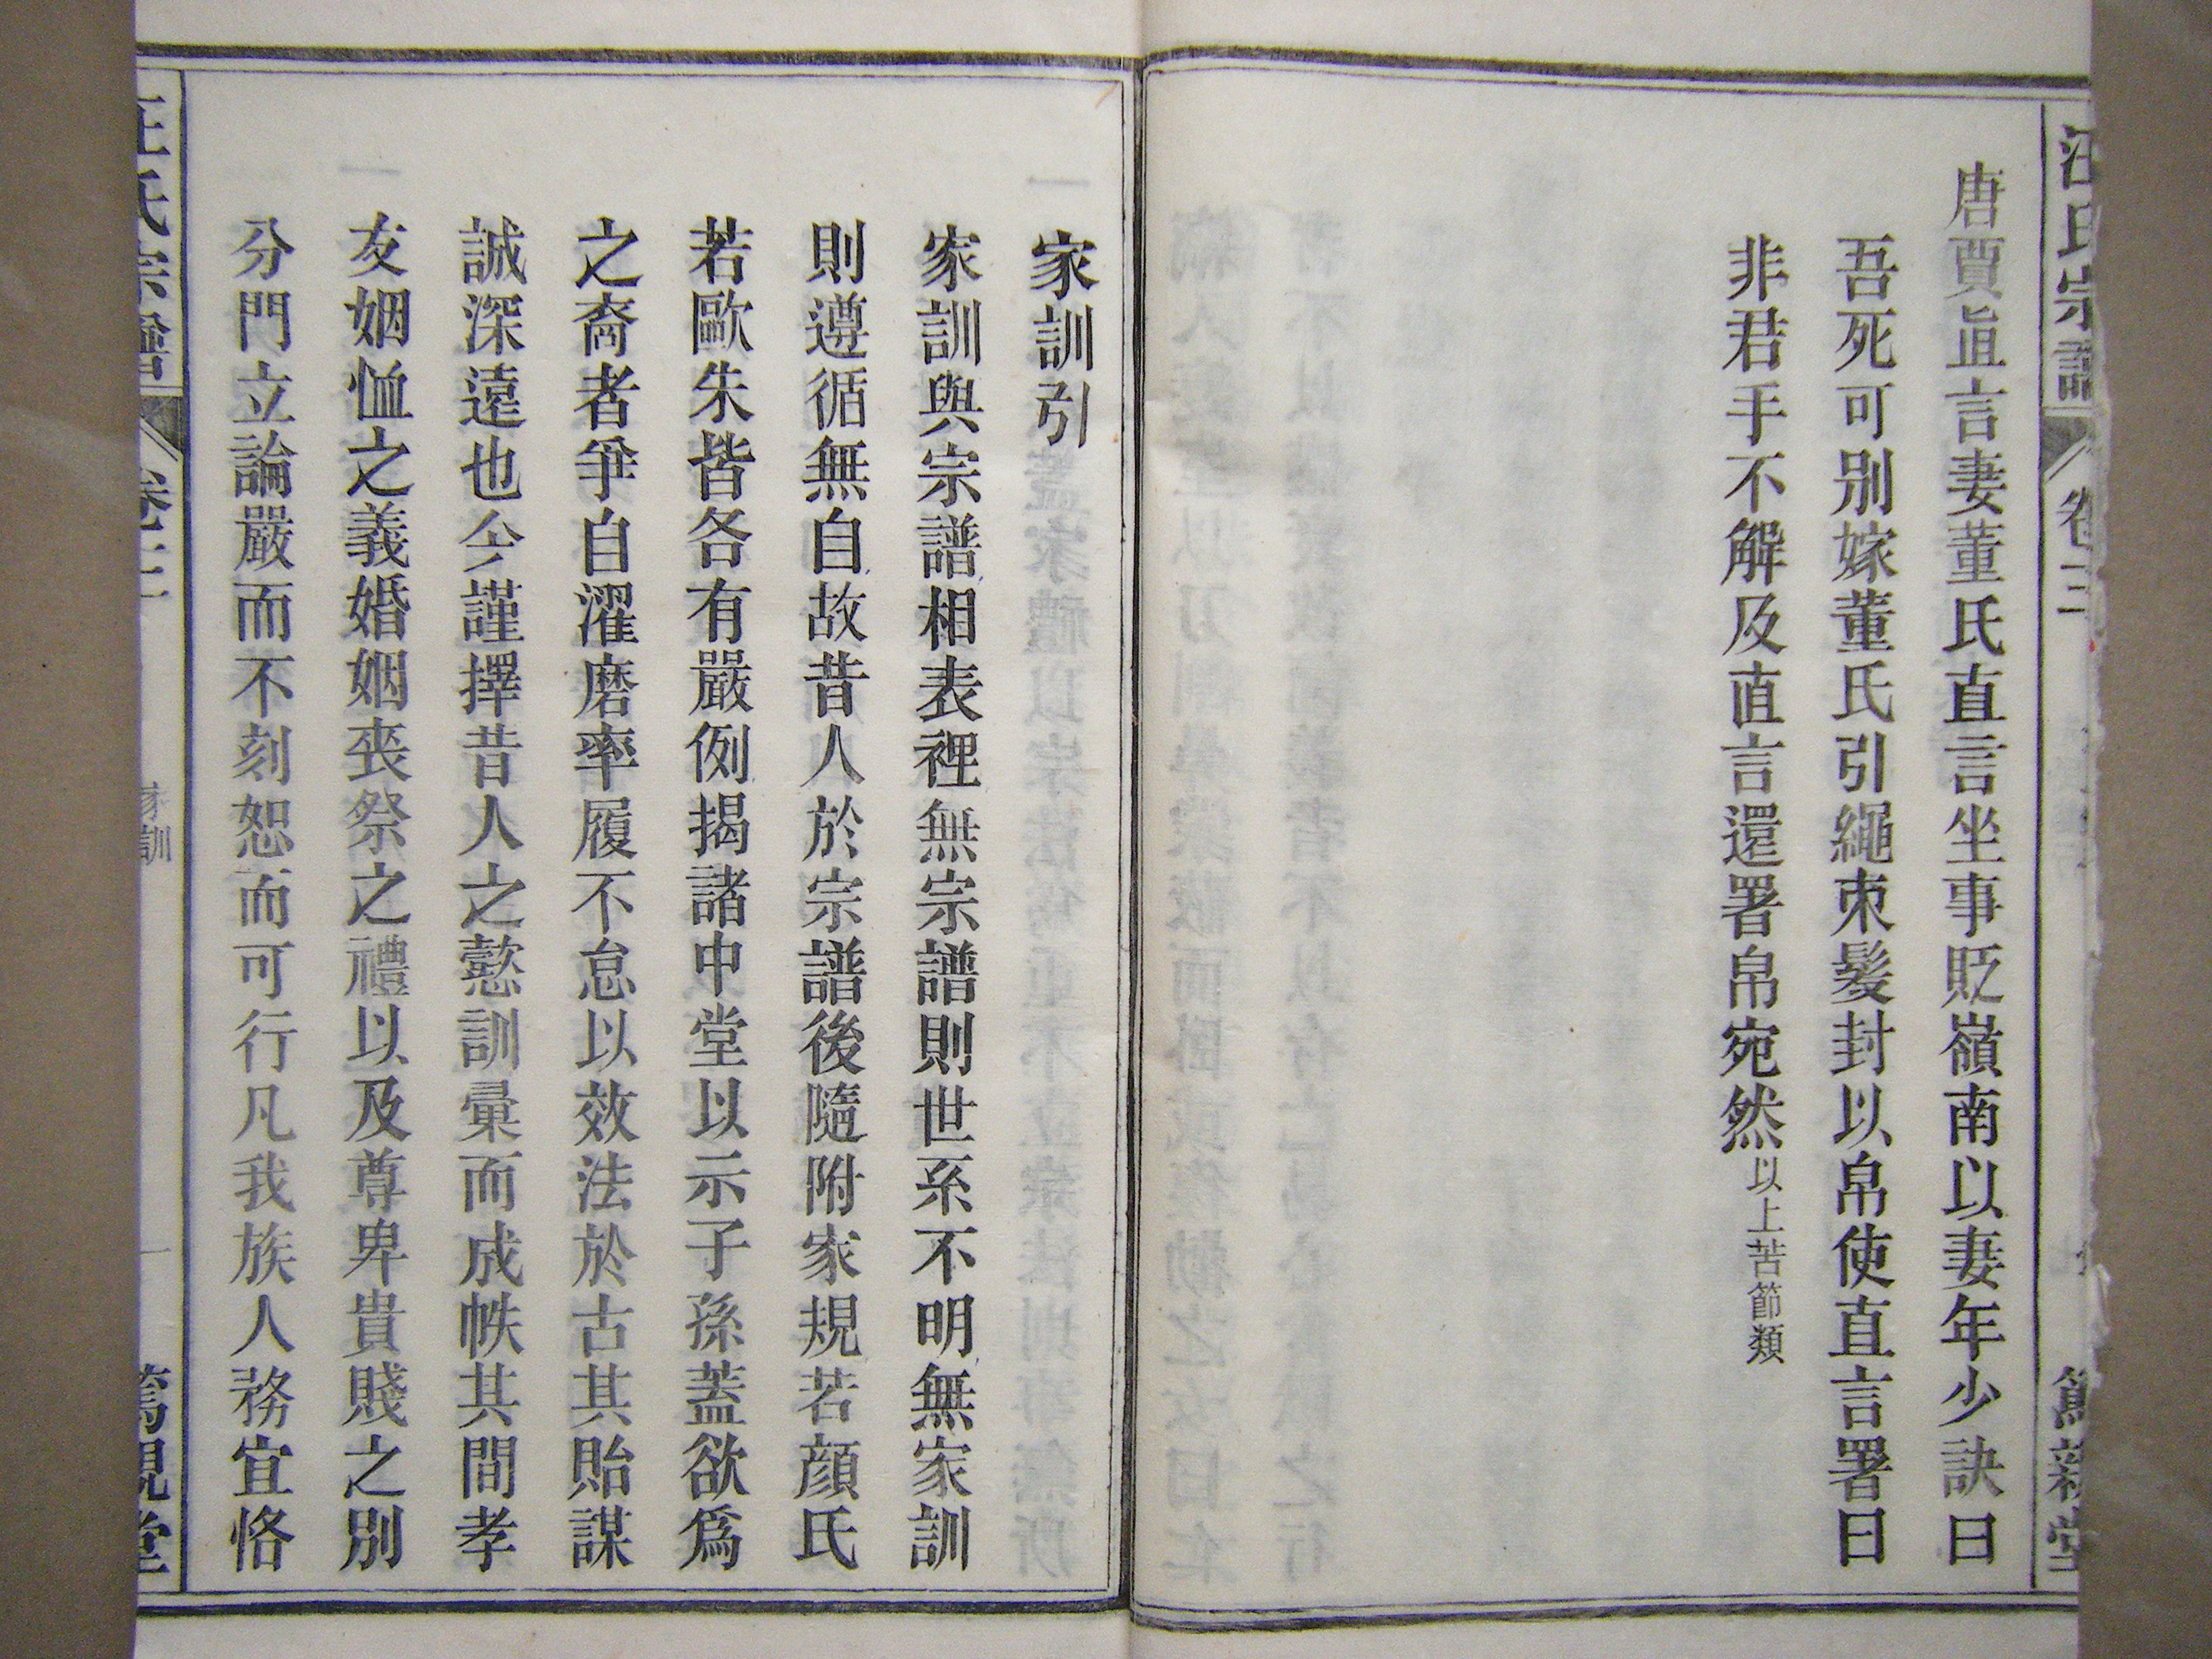 汪氏宗譜 卷三
唐賈直言妻董氏直言坐事貶嶺南以妻年少訣曰
吾死可別嫁董氏引繩束髮封以帛使直言署曰
非君手不解及直言還署帛宛然以上苦節類
家訓引
家訓與宗譜相表裡無宗譜則世系不明無家訓
則遵循無自故昔人於宗譜後隨附家規若顔氏
若歐朱皆各有嚴例揭諸中堂以示子孫蓋欲爲
之裔者爭自濯磨率履不怠以效法於古其貽謀
誠深遠也今謹擇昔人之懿訓彙而成帙其間孝
友姻恤之義婚姻喪祭之禮以及尊卑貴賤之別
分門立論嚴而不刻恕而可行凡我族人務宜恪
汪氏宗譜 卷三 家訓 一 篤親堂